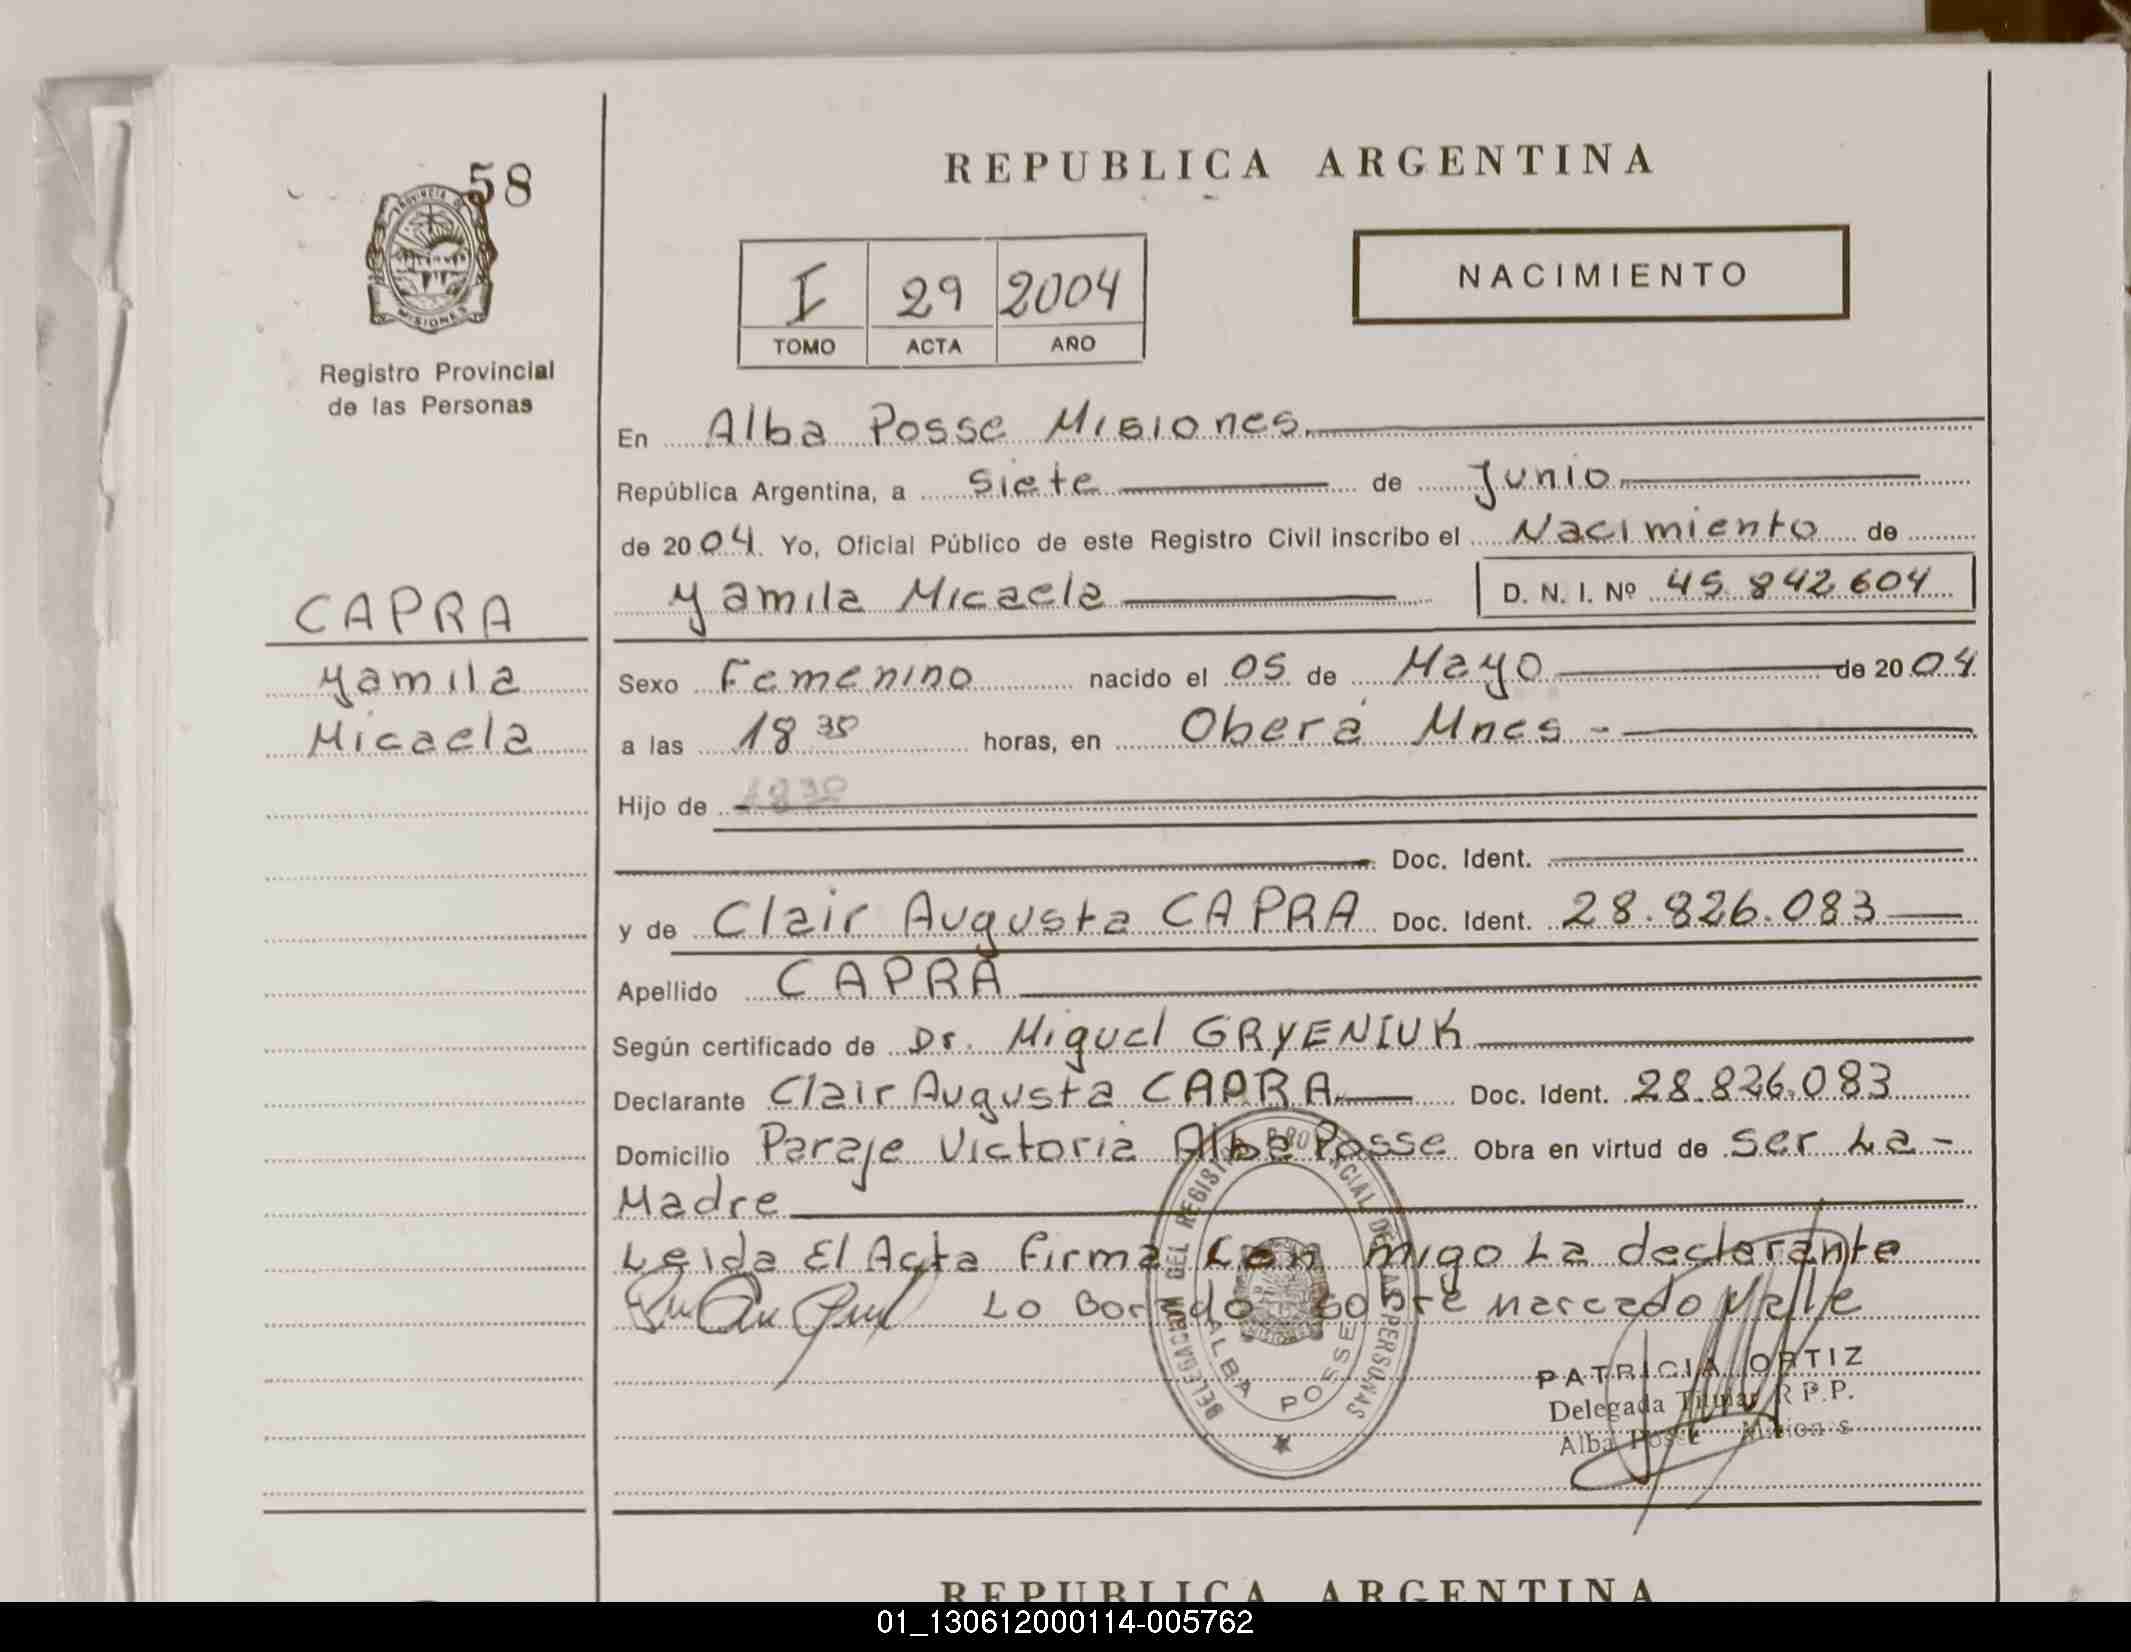 58
PROVINCIA D
MISIONES
Registro Provincial
de las Personas
CAPRA
Yamila
Micaela
REPUBLICA ARGENTINA
I 29 2004
TOMO ACTA AÑO
NACIMIENTO
En Alba Posse Misiones.
República Argentina, a siete de Junio
de 2004. Yo, Oficial Público de este Registro Civil inscribo el Nacimiento de
Yamila Micaela D. N. I. Nº 45.842.604
Sexo Femenino nacido el 05 de Mayo de 2004.
a las 18 30 horas, en Oberá Mnes -
Hijo de 1830
Doc. Ident.
y de Clair Augusta CAPRA Doc. Ident. 28.826.083
Apellido CAPRA
Según certificado de Dr. Miguel GRYENIUK
Declarante Clair Augusta CAPRA Doc. Ident. 28.826.083
Domicilio Paraje Victoria Alba Posse Obra en virtud de ser La -
Madre
Leida El Acta firma con migo La declarante
Lo Borrado sobre marcado Valle
DELEGACION DEL REGISTRO PROVINCIAL DE LAS PERSONAS
ALBA POSSE
PATRICIA ORTIZ
Delegada Titular R.P.P.
Alba Posse Misiones
REPUBLICA ARGENTINA
01_130612000114-005762